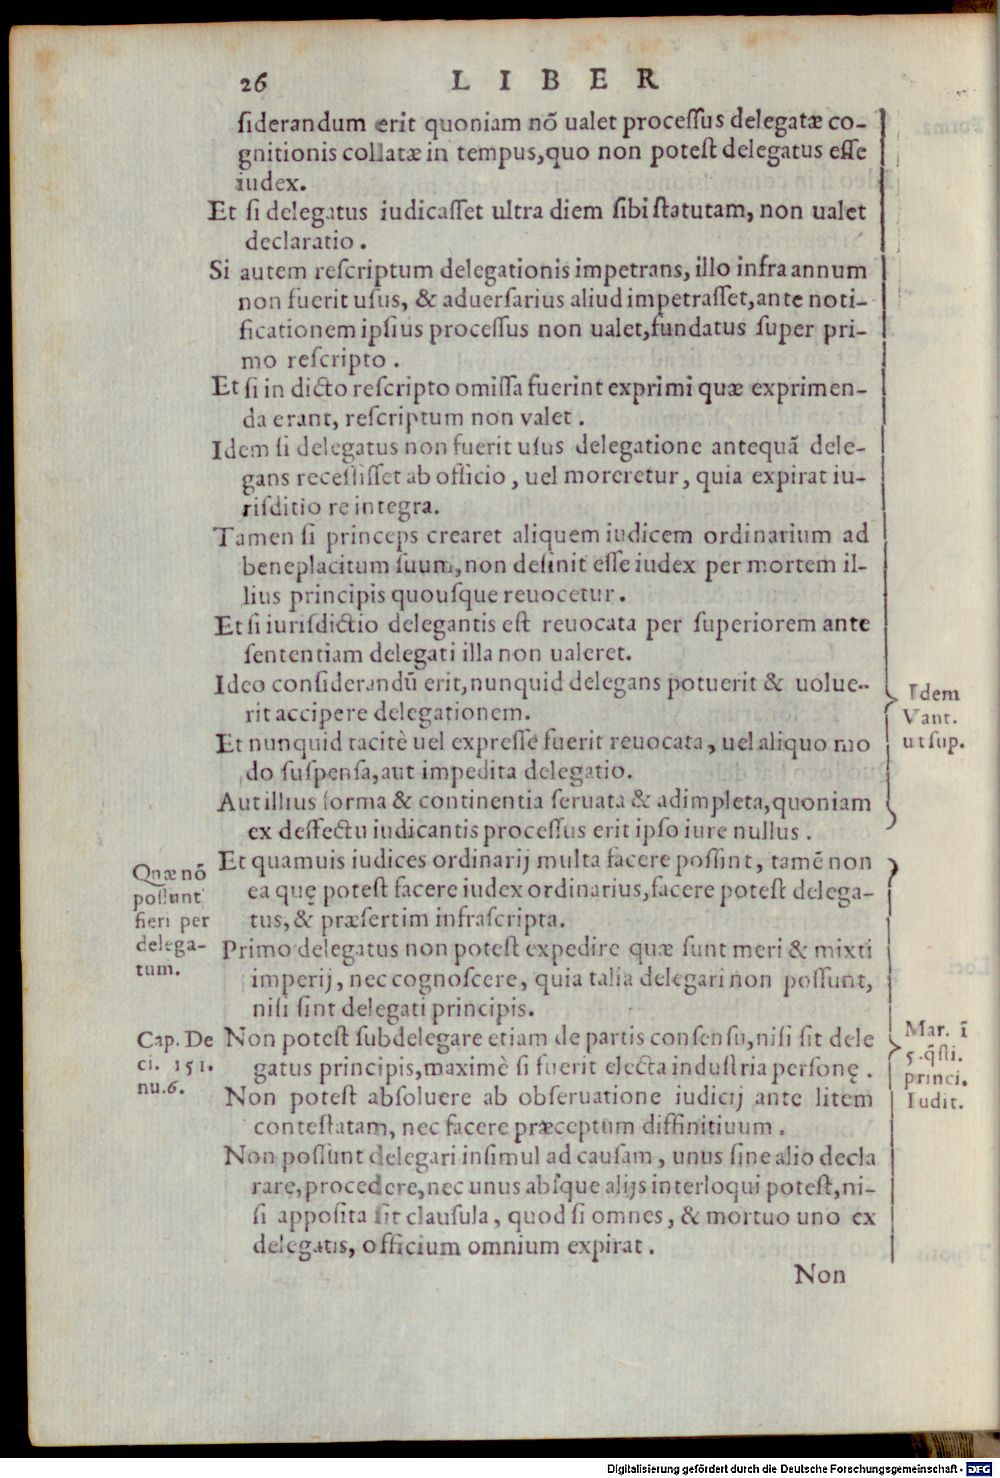 26 LIBER
siderandum erit quoniam nõ ualet processus delegatæ co-
gnitionis collatæ in tempus, quo non potest delegatus esse
iudex.
Et si delegatus iudicasset ultra diem sibi statutam, non ualet
declaratio.
Si autem rescriptum delegationis impetrans, illo infra annum
non fuerit usus, & aduersarius aliud impetrasset, ante noti-
ficationem ipsius processus non ualet, fundatus super pri-
mo rescripto.
Et si in dicto rescripto omissa fuerint exprimi quæ exprimen-
da erant, rescriptum non valet.
Idem si delegatus non fuerit usus delegatione antequã dele-
gans recessisset ab officio, uel moreretur, quia expirat iu-
risditio re integra.
Tamen si princeps crearet aliquem iudicem ordinarium ad
beneplacitum suum, non desinit esse iudex per mortem il-
lius principis quousque reuocetur.
Et si iurisdictio delegantis est reuocata per superiorem ante
sententiam delegati illa non ualeret.
Ideo considerandũ erit, nunquid delegans potuerit & uolue-
rit accipere delegationem.
Et nunquid tacitè uel expresse fuerit reuocata, uel aliquo mo
do suspensa, aut impedita delegatio.
Aut illius forma & continentia seruata & adimpleta, quoniam
ex deffectu iudicantis processus erit ipso iure nullus.
Idem
Vant.
ut sup.
Et quamuis iudices ordinarij multa facere possint, tamẽ non
ea quę potest facere iudex ordinarius, facere potest delega-
tus, & præsertim infrascripta.
Quæ nõ
possunt
fieri per
delega-
tum.
Primo delegatus non potest expedire quæ sunt meri & mixti
imperij, nec cognoscere, quia talia delegari non possunt,
nisi sint delegati principis.
Non potest subdelegare etiam de partis consensu, nisi sit dele
gatus principis, maximè si fuerit electa industria personę.
Cap. De
ci. 151.
nu.6.
Mar. ĩ
5. q̃sti.
princi.
Iudit.
Non potest absoluere ab obseruatione iudicij ante litem
contestatam, nec facere præceptum diffinitiuum.
Non possunt delegari insimul ad causam, unus sine alio decla
rare, procedere, nec unus absque alijs interloqui potest, ni-
si apposita sit clausula, quod si omnes, & mortuo uno ex
delegatis, officium omnium expirat.
Non
Digitalisierung gefördert durch die Deutsche Forschungsgemeinschaft - DFG